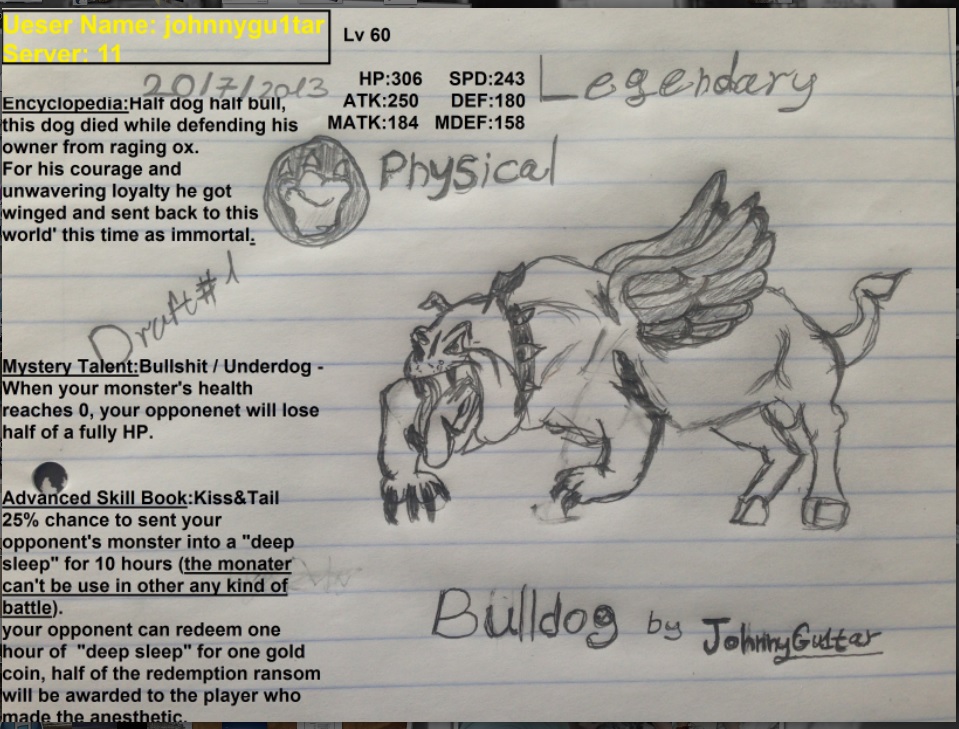 Ueser Name: johnnygu1tar
Server: 11
Lv 60
HP:306 SPD:243
ATK:250 DEF:180
MATK:184 MDEF:158
Legendary
20/7/2013
Encyclopedia:Half dog half bull,
this dog died while defending his
owner from raging ox.
For his courage and
unwavering loyalty he got
winged and sent back to this
world' this time as immortal.
Physical
Draft#1
Mystery Talent:Bullshit / Underdog -
When your monster's health
reaches 0, your opponenet will lose
half of a fully HP.
Advanced Skill Book:Kiss&Tail
25% chance to sent your
opponent's monster into a "deep
sleep" for 10 hours (the monater
can't be use in other any kind of
battle).
your opponent can redeem one
hour of "deep sleep" for one gold
coin, half of the redemption ransom
will be awarded to the player who
made the anesthetic.
Bulldog by JohnnyGu1tar